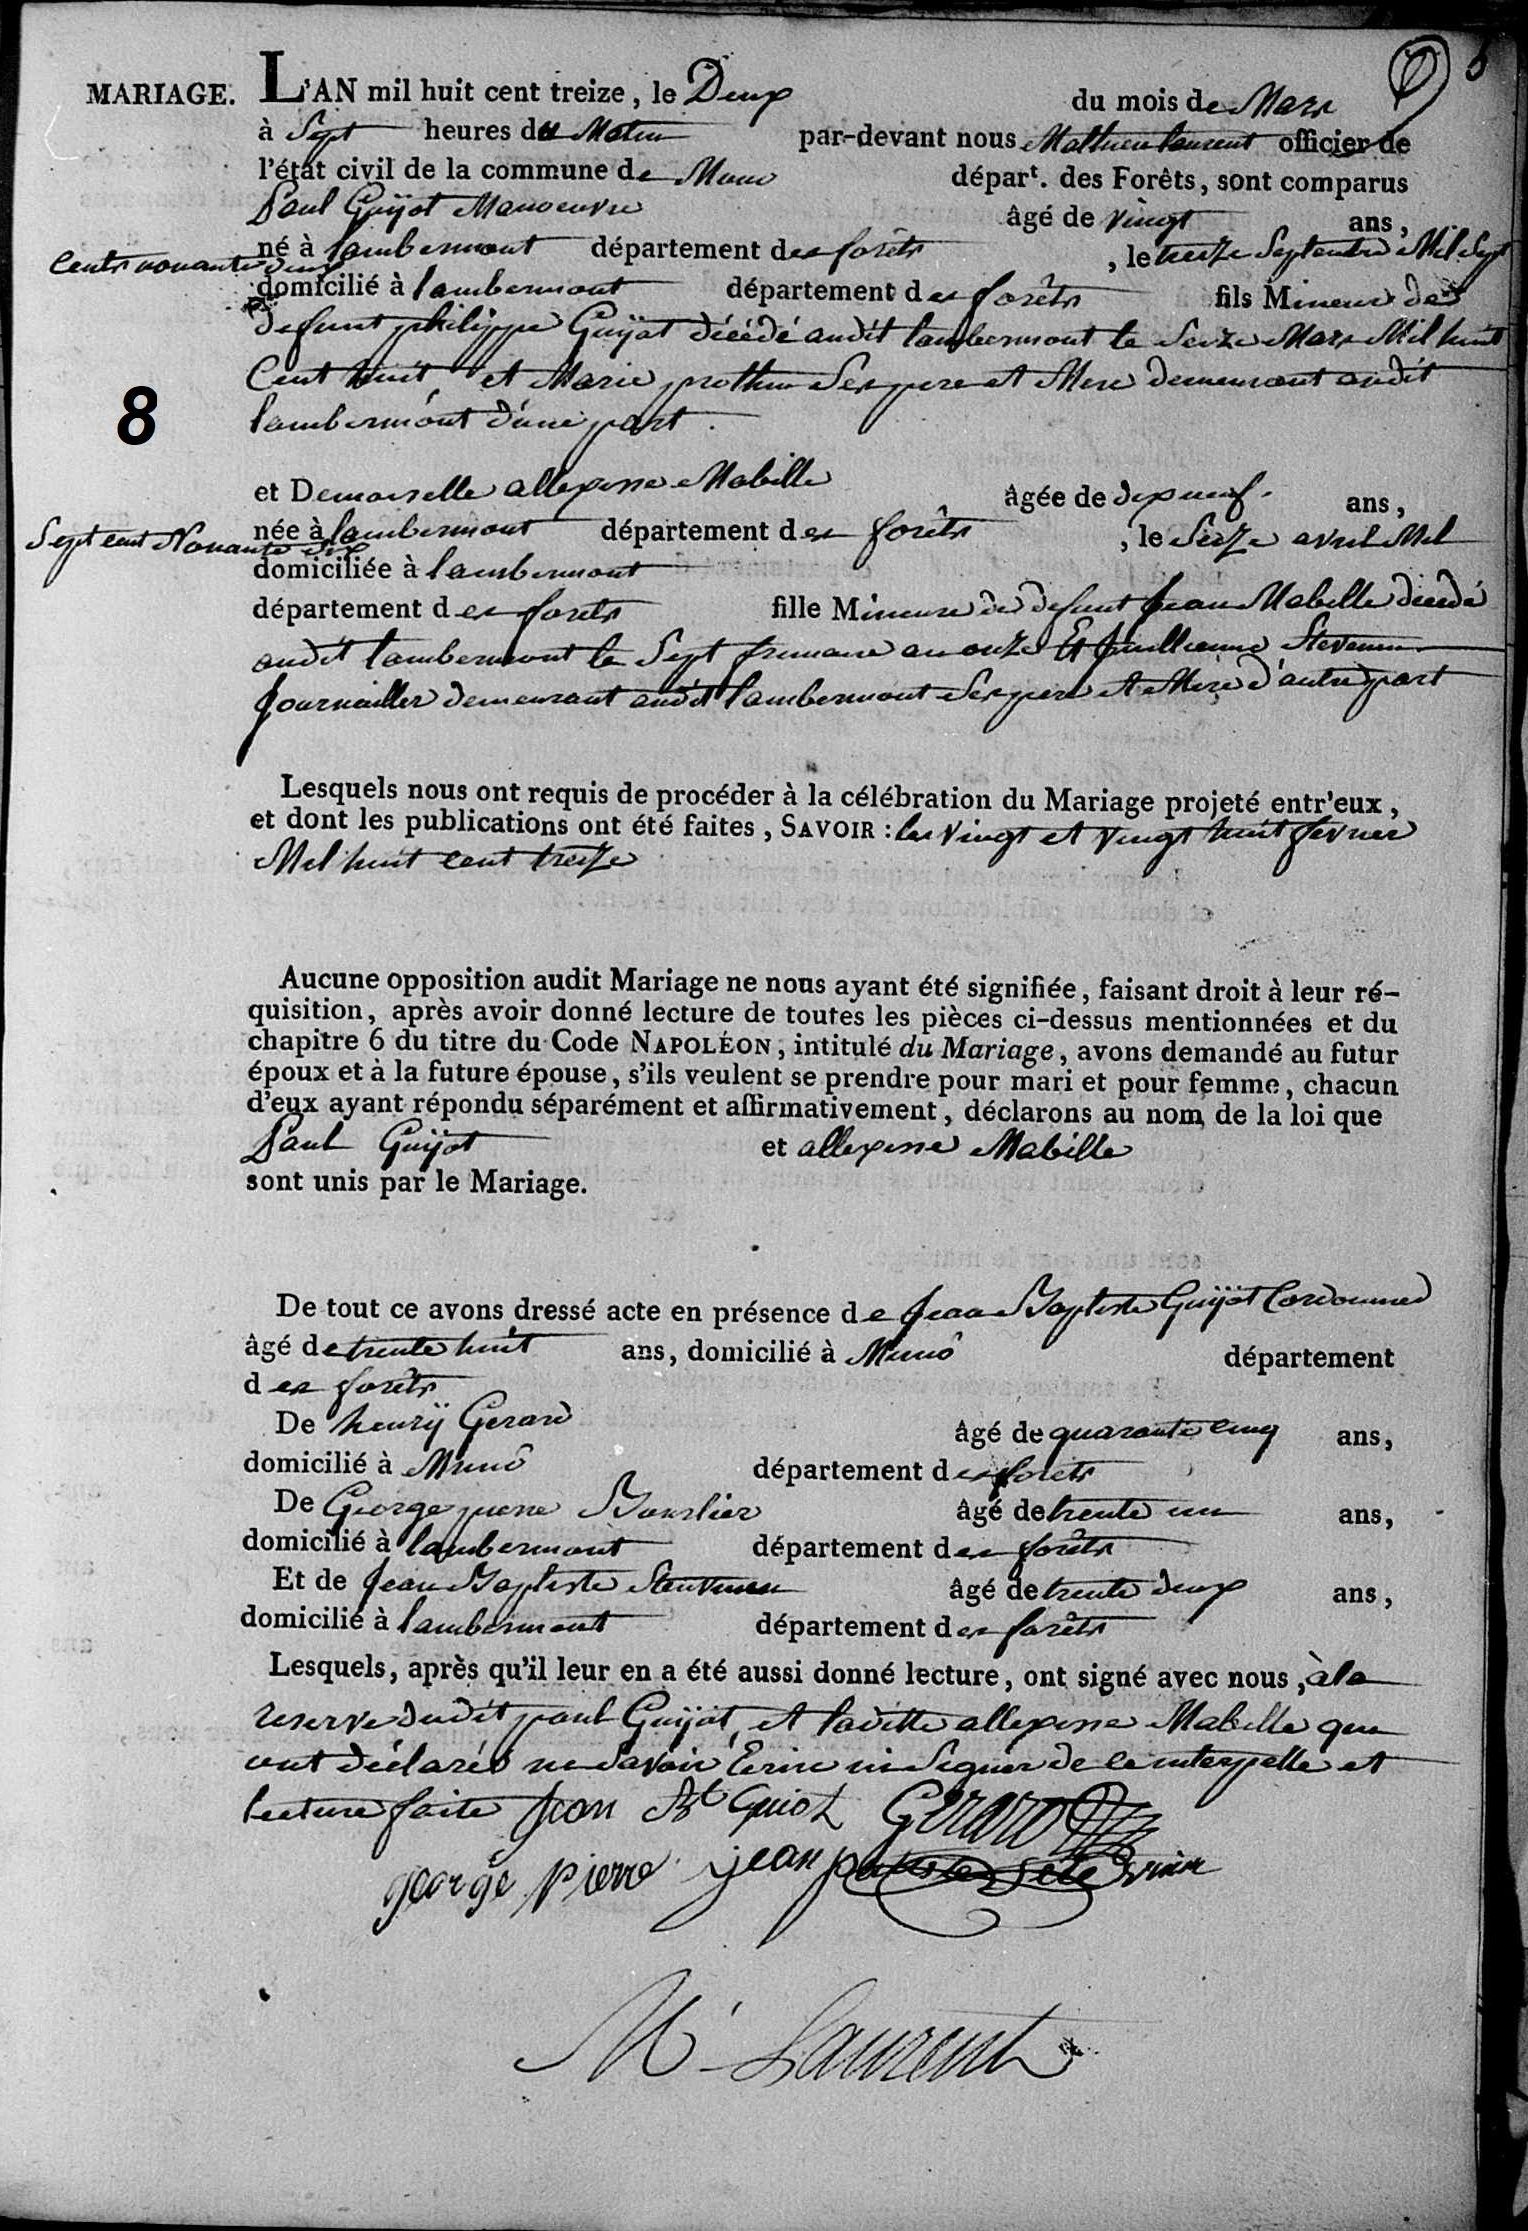 MARIAGE. L'AN mil huit cent treize, le Deux du mois de Mars
à Sept heures du Matin par-devant nous Mathieu laurent officier de
l'état civil de la commune de Muno départ. des Forêts, sont comparus
Paul Guÿot Manoeuvre âgé de vingt ans,
né à lambermont département des forêts, le treize Septembre Mil Sept
Cents nonante deux
domicilié à lambermont département des forêts fils Mineur de
defunt philippe Guÿot décédé audit lambermont le Seize Mars Mil huit
Cent huit et Marie Ses pere et Mere demeurant audit
lambermont d'une part.
8
et Demoiselle allexisse Mabille âgée de dixneuf ans,
née à lambermont département des forêts, le Seize avril Mil
Sept cent Nonante
domiciliée à lambermont
département des forets fille Mineure de defunt Jean Mabille décédé
audit lambermont le Sept frimaire an onze Et Stevenin
Journailler demeurant audit lambermont Ses pere et Mere d'autre part
Lesquels nous ont requis de procéder à la célébration du Mariage projeté entr'eux,
et dont les publications ont été faites, SAVOIR : les vingt et vingt huit fevrier
Mil huit cent treize
Aucune opposition audit Mariage ne nous ayant été signifiée, faisant droit à leur ré-
quisition, après avoir donné lecture de toutes les pièces ci-dessus mentionnées et du
chapitre 6 du titre du Code NAPOLÉON, intitulé du Mariage, avons demandé au futur
époux et à la future épouse, s'ils veulent se prendre pour mari et pour femme, chacun
d'eux ayant répondu séparément et affirmativement, déclarons au nom de la loi que
Paul Guÿot et allexisse Mabille
sont unis par le Mariage.
De tout ce avons dressé acte en présence de Jean Baptiste Guÿot Cordonnier
âgé de trente huit ans, domicilié à Muno département
des forêts
De henrÿ Gerard âgé de quarante cinq ans,
domicilié à Muno département des forets
De George pierre Bourlier âgé de trente un ans,
domicilié à lambermont département des forêts
Et de Jean Baptiste Stevenin âgé de trente deux ans,
domicilié à lambermont département des forêts
Lesquels, après qu'il leur en a été aussi donné lecture, ont signé avec nous, à la
reserve dudit paul Guÿot, et laditte allexisse Mabille qui
ont déclarés ne Savoir Ecrire ni Signer de ce interpellé et
lecture faite Jean Bt Guiot Gerard
george pierre jean
M Laurent